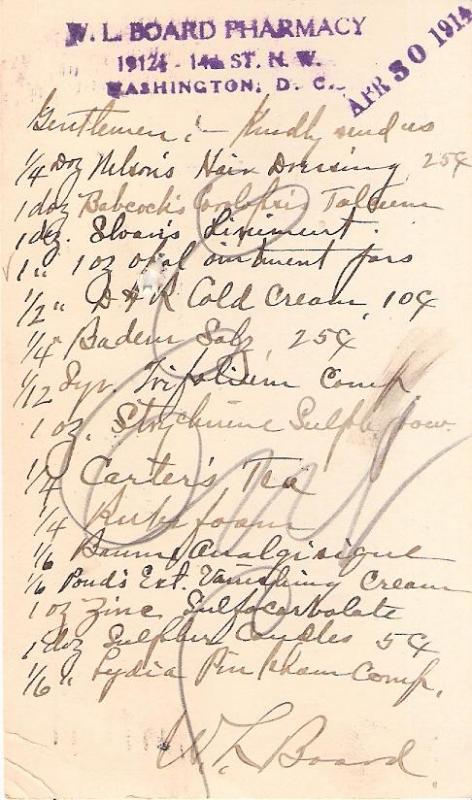 W. L. BOARD PHARMACY
1912½ - 14th ST. N. W.
WASHINGTON, D. C.
APR 30 1914
Gentlemen:— Kindly send us
1/4 Doz Nelson's Hair Dressing 25¢
1 doz Babcock's Corylopsis Talcum
1 doz. Sloan's Liniment.
1 " 1 oz opal ointment jars
1/2 " D & R Cold Cream, 10¢
1/4 " Badem Salz, 25¢
1/12 Syr. Trifolium Comp
1 oz. Strychnine Sulph pow.
1/4 Carter's Tea
1/4 Rubifoam
1/6 Baume Analgisique
1/6 Pond's Ext. Vanishing Cream
1 oz Zinc Sulfocarbolate
1 doz Sulphur Candles 5¢
1/6 " Lydia Pinkham Comp.
W. L. Board